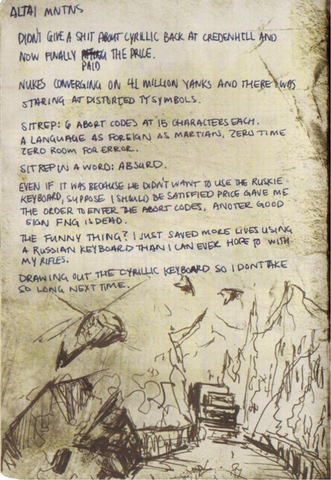 ALTAI MNTNS
DIDN'T GIVE A SHIT ABOUT CYRILLIC BACK AT CREDENHILL AND
NOW FINALLY THE PRICE.
PAID
NUKES CONVERGING ON 41 MILLION YANKS AND THERE I WAS
STARING AT DISTORTED TY SYMBOLS.
SITREP: 6 ABORT CODES AT 15 CHARACTERS EACH.
A LANGUAGE AS FOREIGN AS MARTIAN, ZERO TIME
ZERO ROOM FOR ERROR.
SITREP IN A WORD: ABSURD.
EVEN IF IT WAS BECAUSE HE DIDN'T WANT TO USE THE RUSKIE
KEYBOARD, SUPPOSE I SHOULD BE SATISFIED PRICE GAVE ME
THE ORDER TO ENTER THE ABORT CODES, ANOTER GOOD
SIGN FNG IS DEAD.
THE FUNNY THING? I JUST SAVED MORE LIVES USING
A RUSSIAN KEYBOARD THAN I CAN EVER HOPE TO WITH
MY RIFLES.
DRAWING OUT THE CYRILLIC KEYBOARD SO I DONT TAKE
SO LONG NEXT TIME.